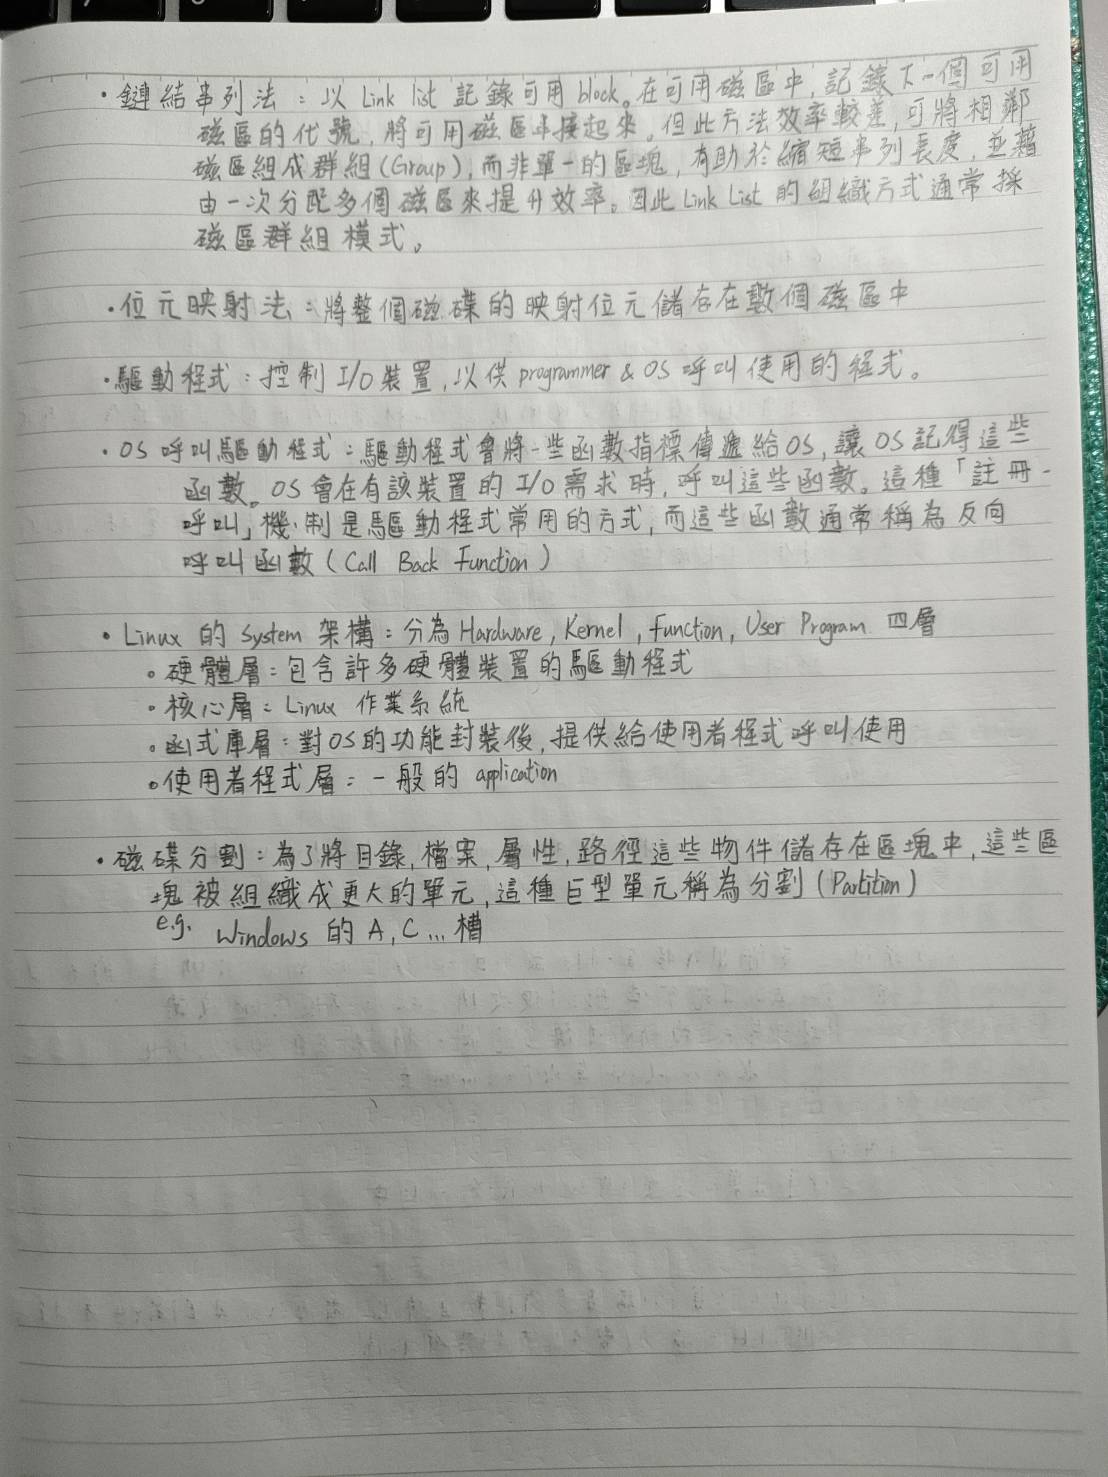 ・鏈結串列法：以 Link list 記錄可用 block。在可用磁區中，記錄下一個可用
磁區的代號，將可用磁區串接起來。但此方法效率較差，可將相鄰
磁區組成群組(Group)，而非單一的區塊，有助於縮短串列長度，並藉
由一次分配多個磁區來提升效率。因此 Link List 的組織方式通常採
磁區群組模式。
・位元映射法：將整個磁碟的映射位元儲存在數個磁區中
・驅動程式：控制 I/O 裝置，以供 programmer & OS 呼叫使用的程式。
・OS 呼叫驅動程式：驅動程式會將一些函數指標傳遞給OS，讓OS記得這些
函數。OS會在有該裝置的 I/O 需求時，呼叫這些函數。這種「註冊-
呼叫」機制是驅動程式常用的方式，而這些函數通常稱為反向
呼叫函數（Call Back Function）
・Linux 的 System 架構：分為 Hardware, Kernel, Function, User Program 四層
。硬體層：包含許多硬體裝置的驅動程式
。核心層：Linux 作業系統
。函式庫層：對OS的功能封裝後，提供給使用者程式呼叫使用
。使用者程式層：一般的 application
・磁碟分割：為了將目錄，檔案，屬性，路徑這些物件儲存在區塊中，這些區
塊被組織成更大的單元，這種巨型單元稱為分割（Partition）
e.g. Windows 的 A, C ... 槽